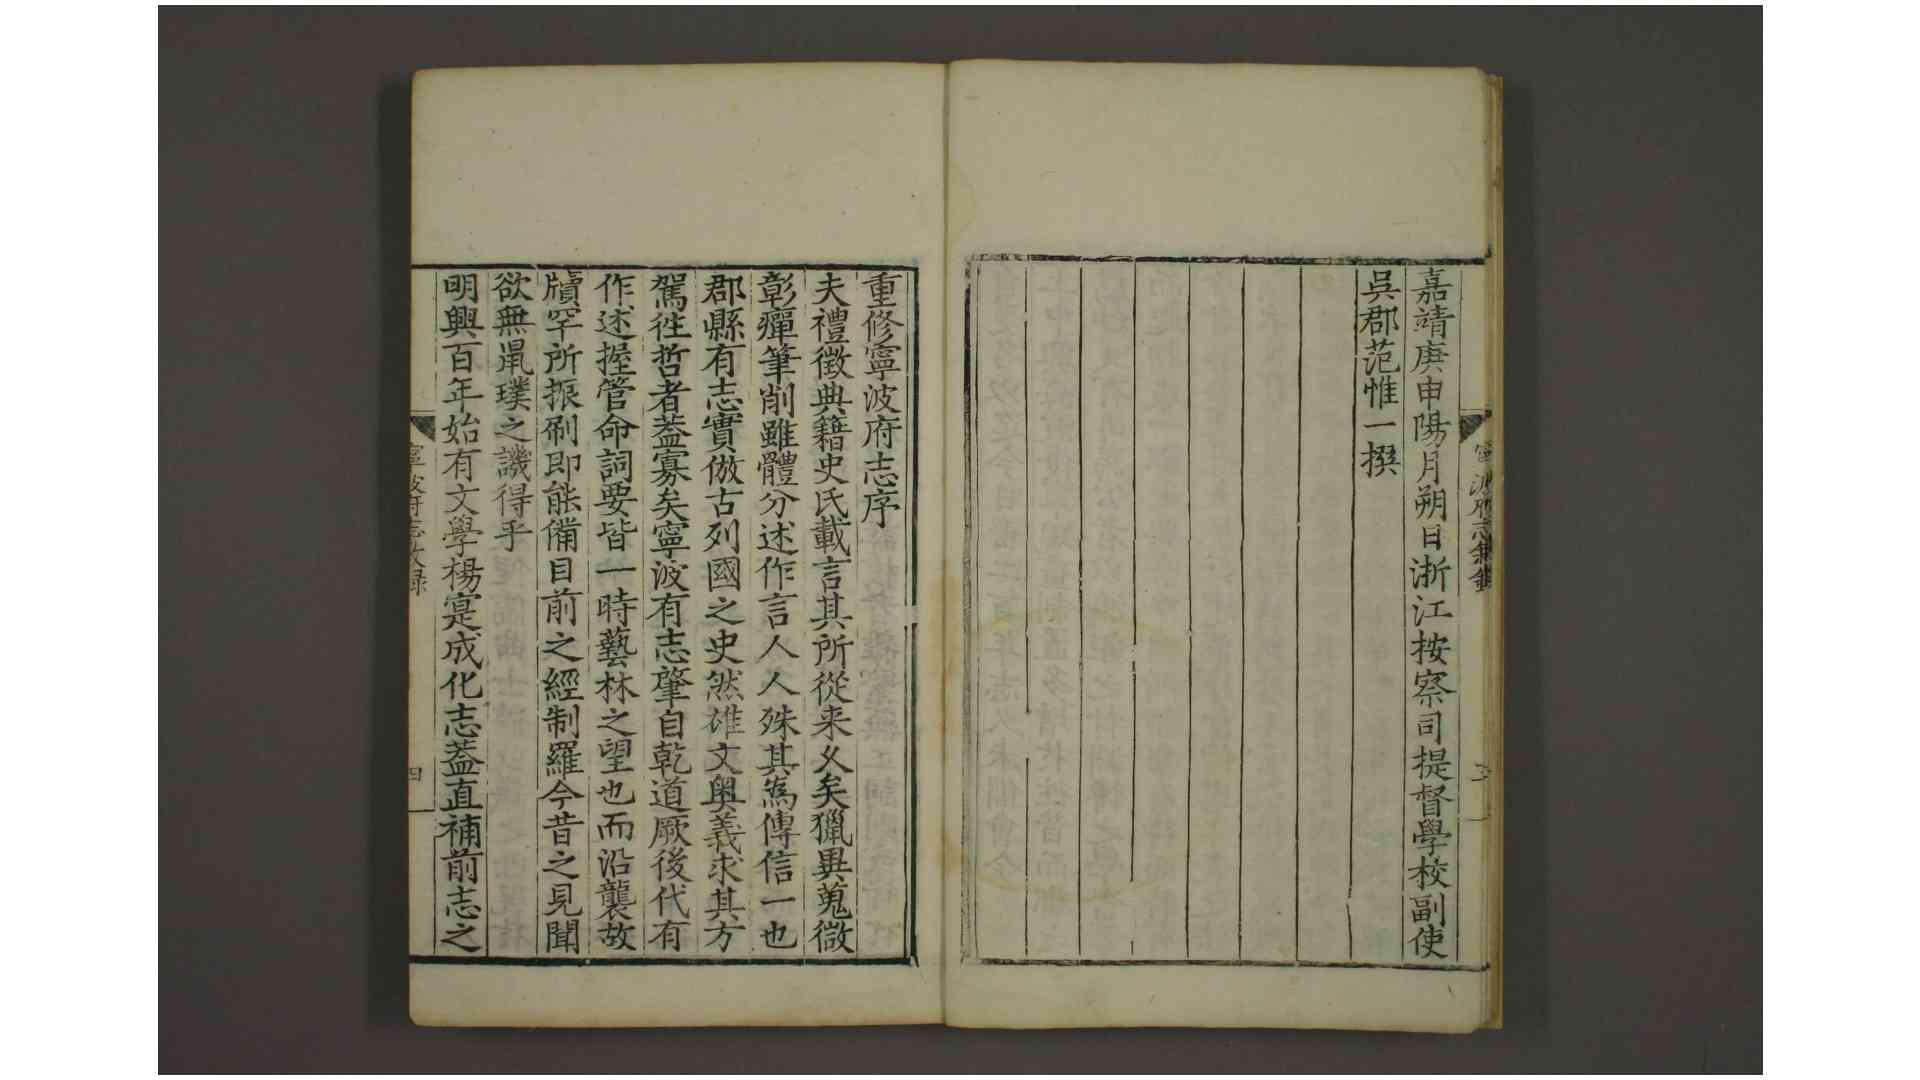 嘉靖庚申陽月朔日浙江按察司提督學校副使
吳郡范惟一撰
重修寧波府志序
夫禮徵典籍史氏載言其所從来乆矣獵異蒐微
彰癉筆削雖體分述作言人人殊其為傳信一也
郡縣有志實倣古列國之史然雄文奥義求其方
駕徃哲者葢寡矣寧波有志肇自乾道厥後代有
作述握管命詞要皆一時藝林之望也而沿襲故
牘罕所振刷即能備目前之經制羅今昔之見聞
欲無鼠璞之譏得乎
明興百年始有文學楊寔成化志葢直補前志之
四